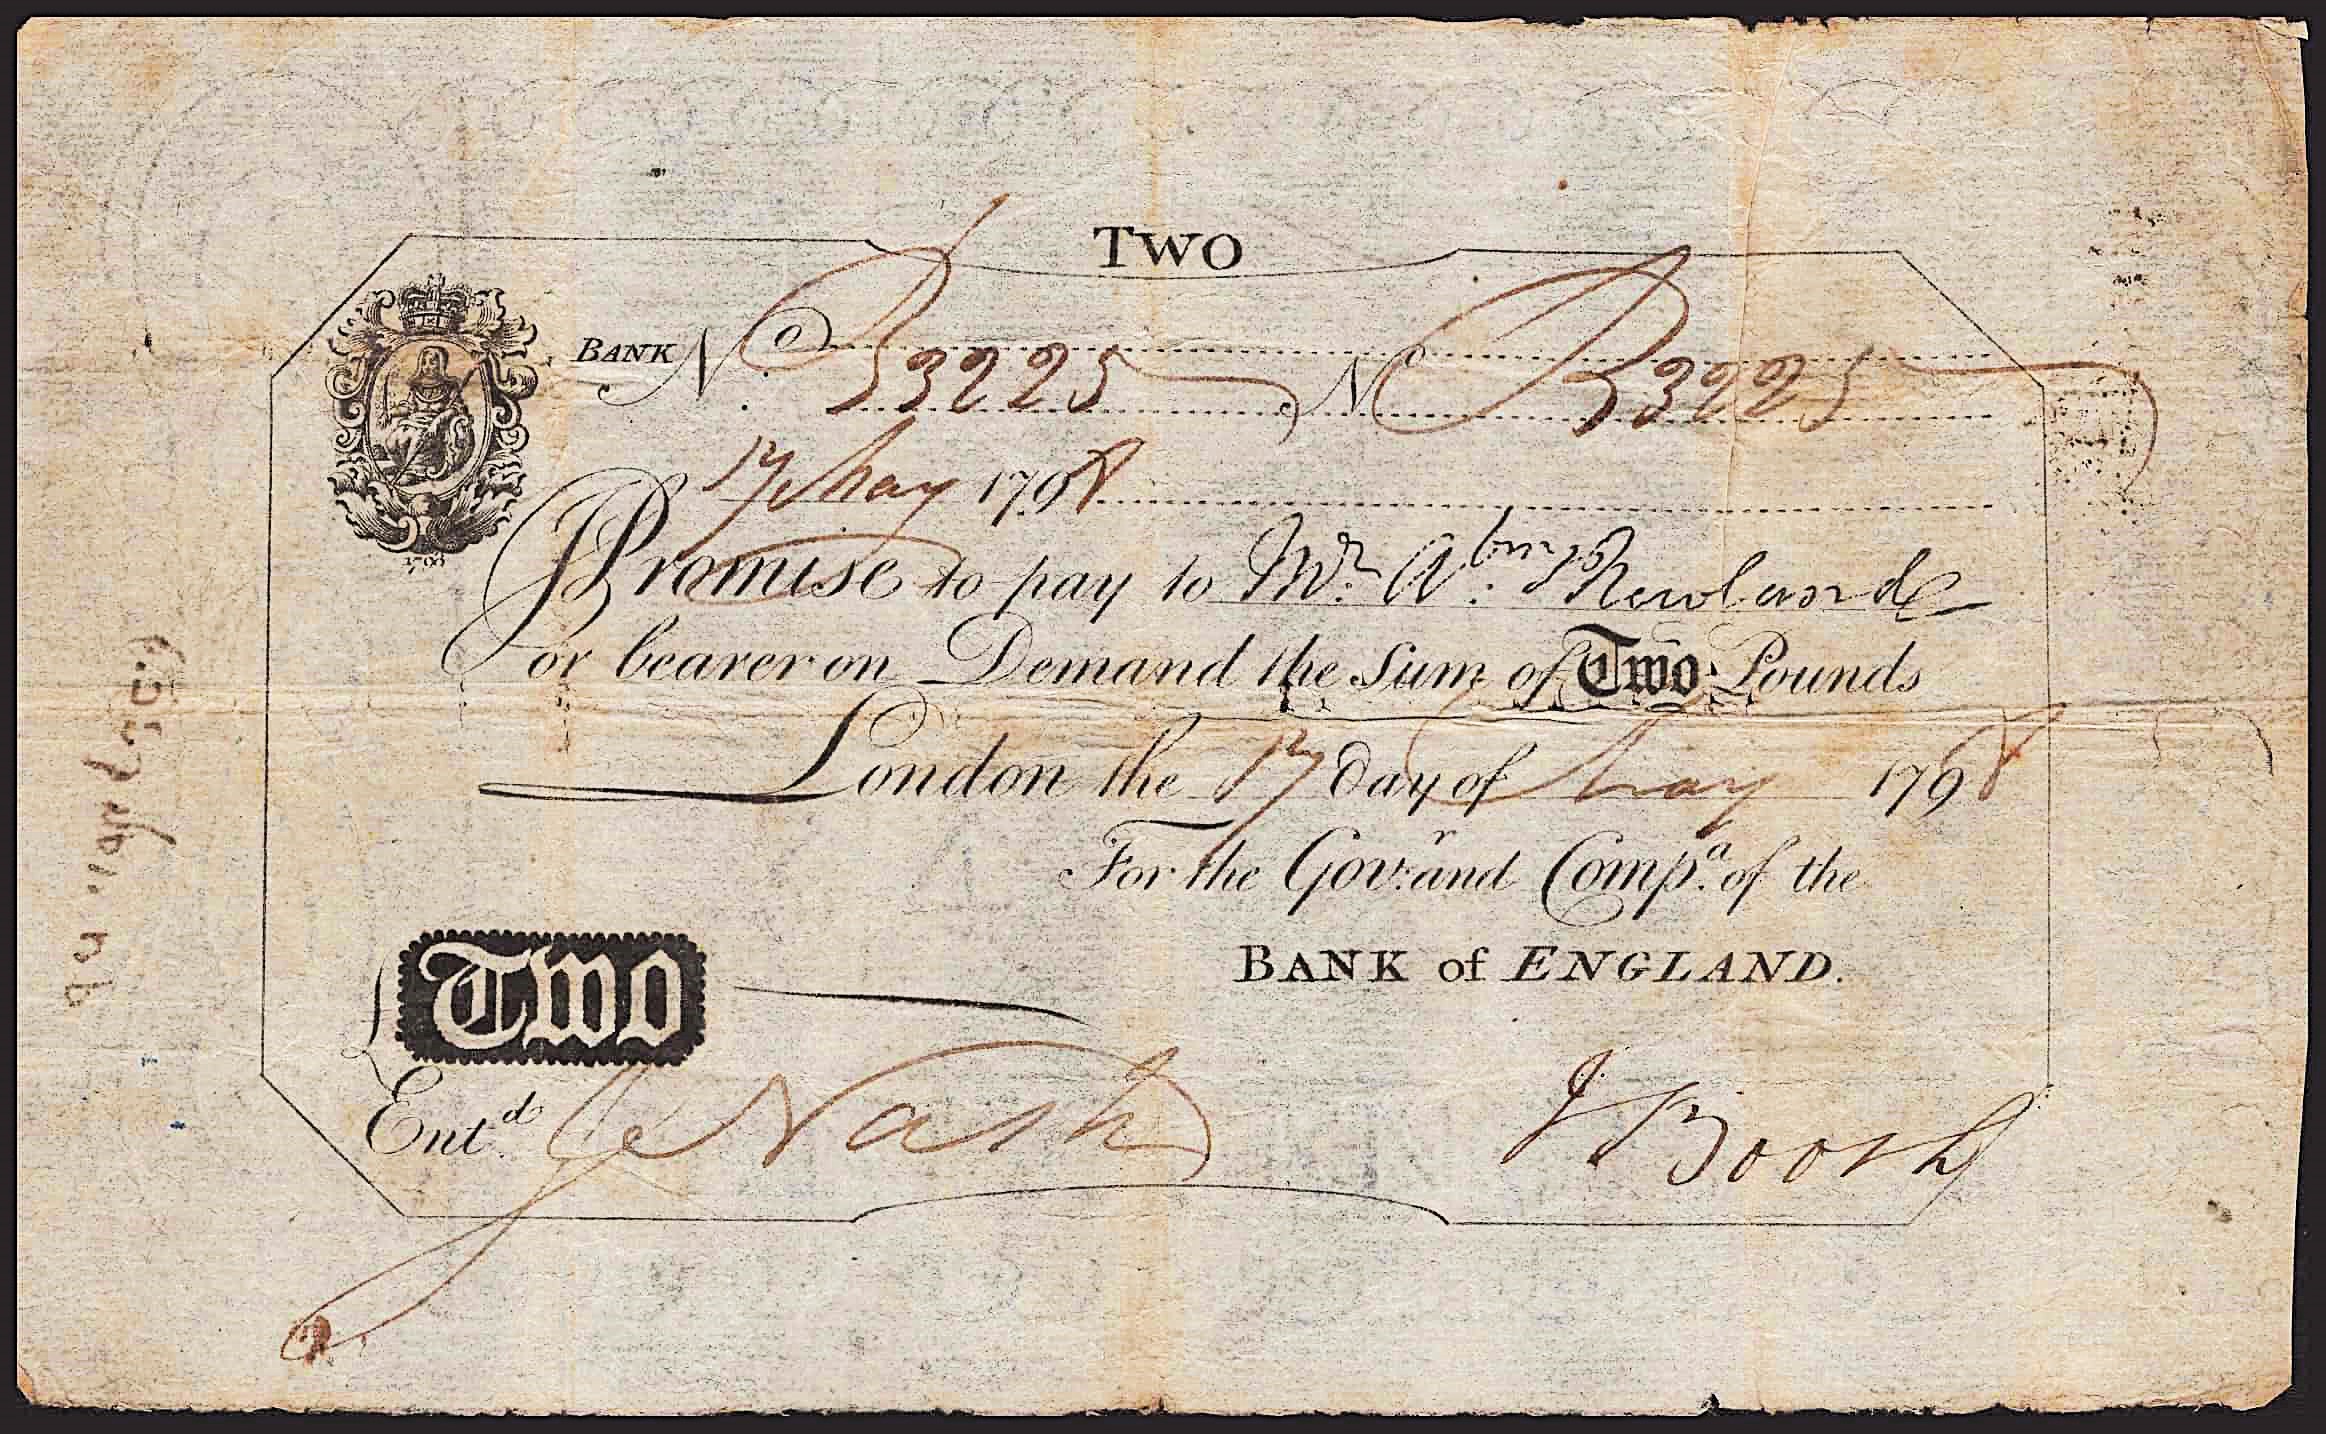 TWO
BANK No. 53225 No 53225
17 May 1798
1798
I Promise to pay to Mr. Abm. Newland
or bearer on Demand the Sum of Two Pounds
London the 17 day of May 1798
For the Govr. and Compa. of the
BANK of ENGLAND.
£ Two
Entd. Nash
J Booth